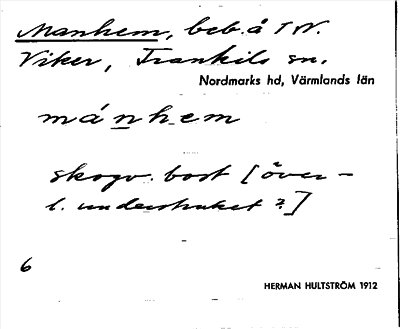 Manhem, beb. å TN.
Viker, Trankils sn.
Nordmarks hd, Värmlands län
mánhem
skogv. bost [över-
l. understruket?]
6
HERMAN HULTSTRÖM 1912